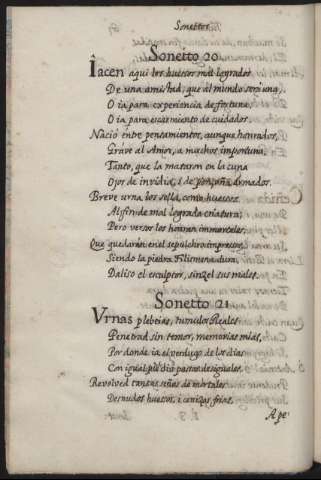 Sonettos
Sonetto 20
Iacen aqui los huesos mal logrados
De una amistad, que al mundo será una,
O ia para experiencia de fortuna,
O ia para escarmiento de cuidados.
Nació entre pensamientos, aunque honrados,
Graue al Amor, a muchos importuna,
Tanto, que la mataron en la cuna
Ojos de invidia, i de ponzoña armados.
Breve urna los sella, como huesos
Al fin de mal lograda criatura;
Pero versos los honran immortales,
Que quedarán en el sepulchro impressos,
Siendo la piedra Filixmena dura,
Daliso el esculptor, sinzel sus males.
Sonetto 21
Vrnas plebeias, tumulos Reales
Penetrad sin temor, memorias mias,
Por donde ia el verdugo de los dias
Con igual pie dio pasos desiguales.
Revolved tantas señas de mortales
Desnudos huesos, i cenizas frias,
A pe